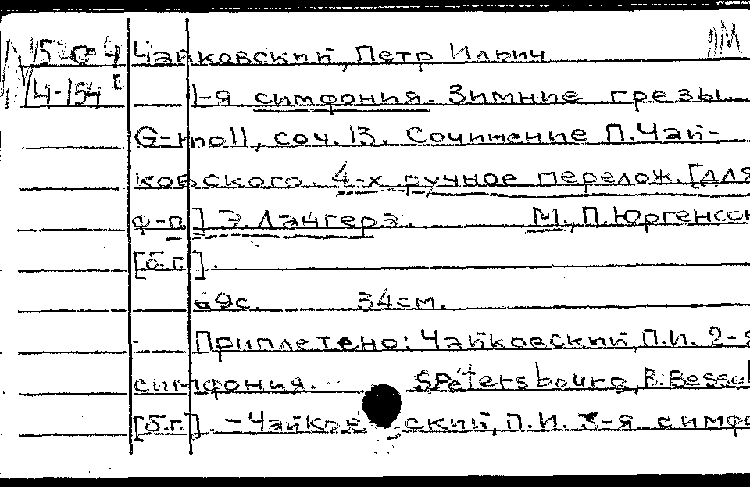 15-0-4 Чайковский, Петр Ильич
Ч-154 1-я симфония. Зимние грезы.
G-moll, соч. 13. Сочинение П. Чай-
ковского. 4-х ручное перелож. [для
ф-п.] Э. Лангера. М., П. Юргенсон
[б.г.].
69с. 34см.
Приплетено: Чайковский, П.И. 2-я
симфония... S.Petersbourg, B. Bessel
[б.г.] - Чайковский, П.И. 3-я симфо